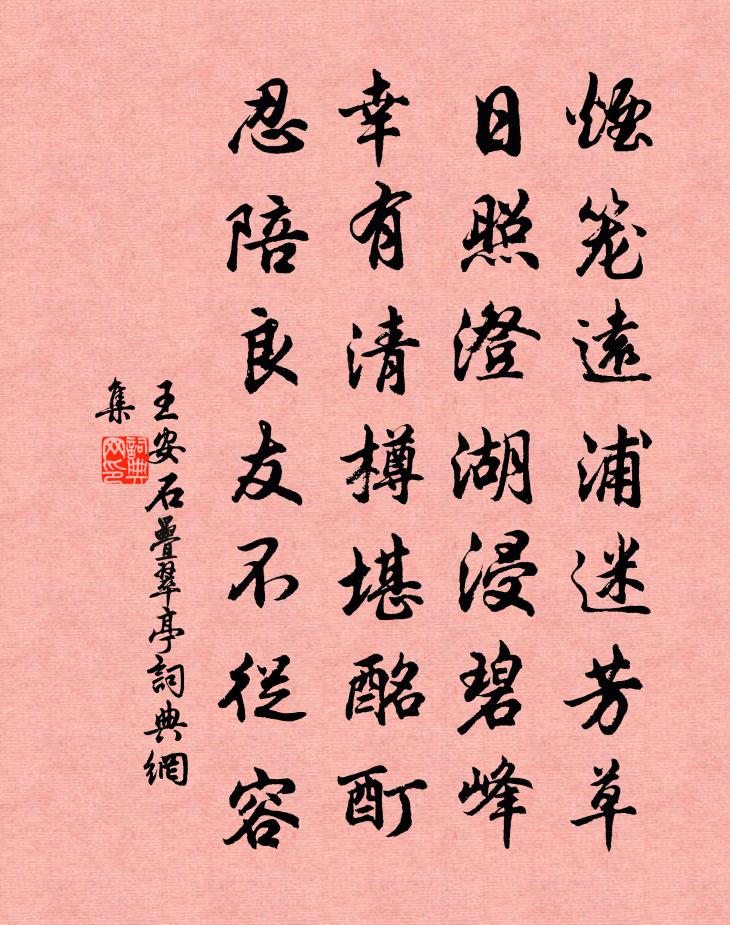 煙笼遠浦迷芳草
日照澄湖浸碧峰
幸有清樽堪酩酊
忍陪良友不從容
王安石疊翠亭詞典網
集
詞典
网印